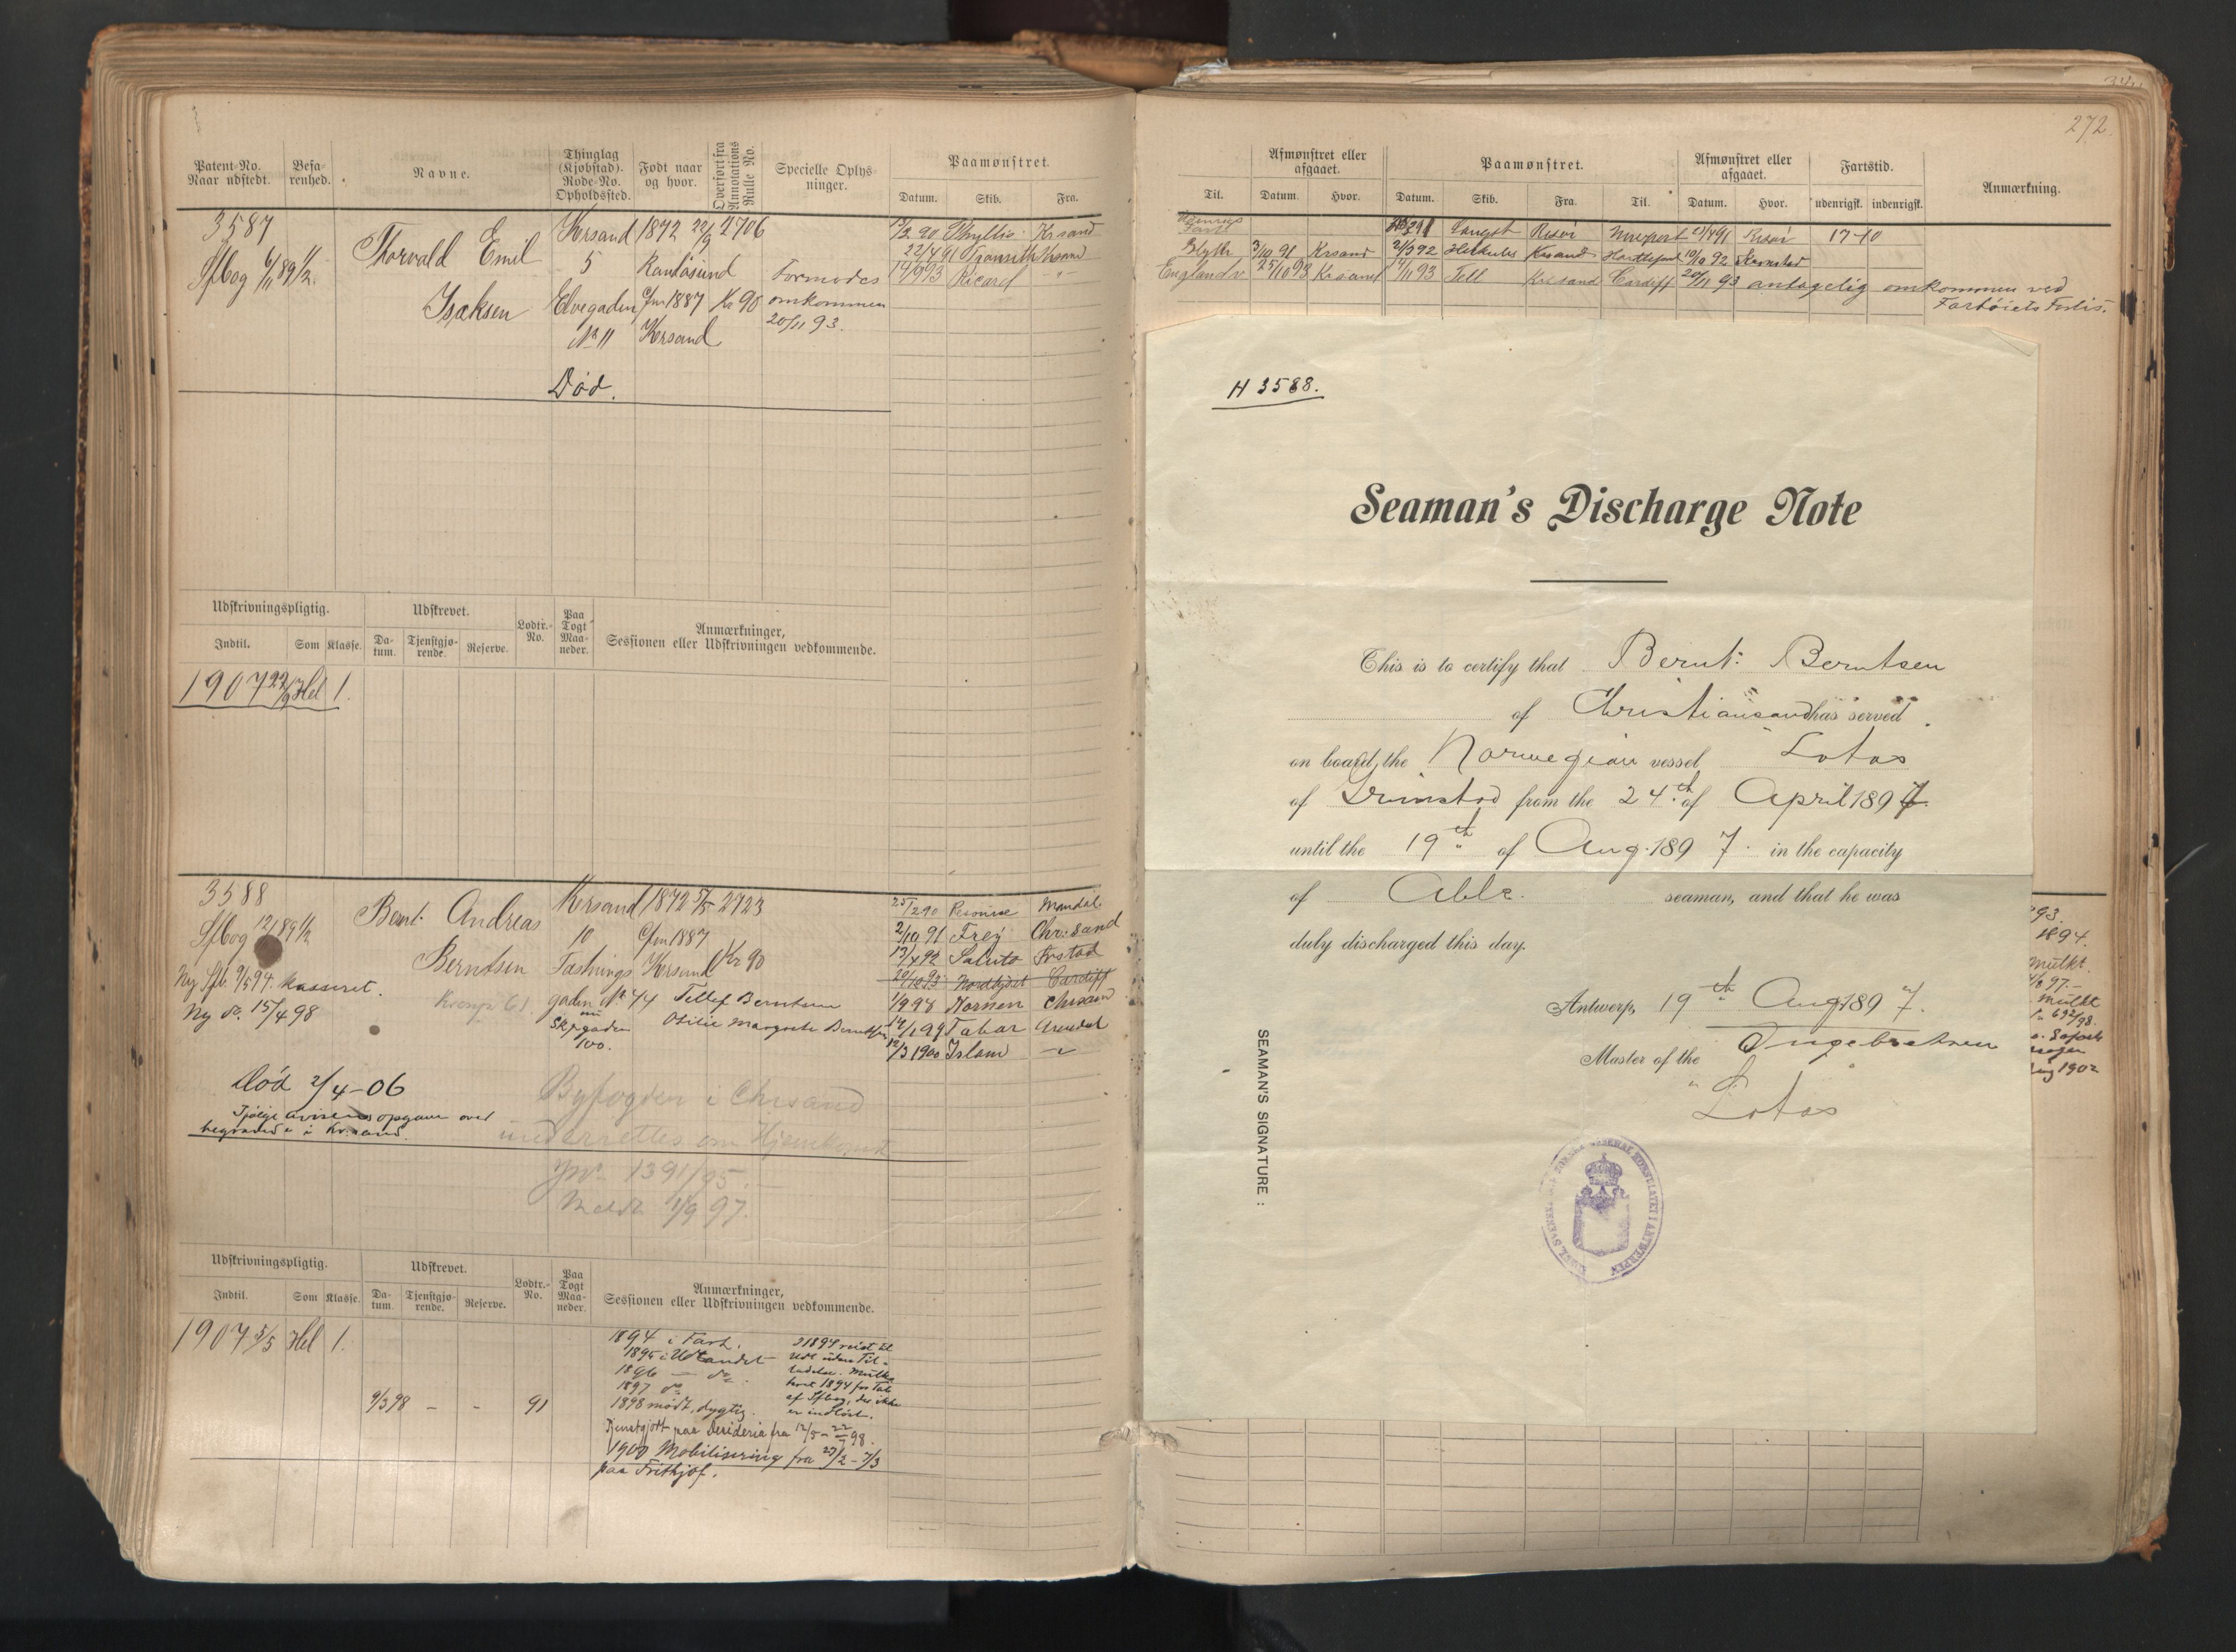 272.
Patent-No. Naar udstedt.
Befarenhed.
Navne.
Thinglag (Kjøbstad). Rode-No. Opholdssted.
Født naar og hvor.
Overført fra Annotations Rulle No.
Specielle Oplysninger.
Paamønstret.
Datum. Skib. Fra.
Til.
Afmønstret eller afgaaet.
Datum. Hvor.
Paamønstret.
Datum. Skib. Fra. Til.
Afmønstret eller afgaaet.
Datum. Hvor.
Fartstid.
udenrigsk. indenrigsk.
Anmærkning.
3587
Sfbog 6/11 89 1/2.
Thorvald Emil
Isaksen
Krsand
5
Elvegaden
No 11
Død.
1872 22/9
Randøsund
Cfm 1887
Krsand
2706
1/1 90
Formodes
omkommen
20/11 93.
90 Phyllis Krsand
22/4 91 Krsand
14/9 93 Ricard - " -
Blyth 3/10 91 Krsand
England 25/10 93 Krsand
Risør Newport 91 Risør 17-10
2/3 92 Herkules Krsand Hartlepool 10/10 92
/11 93 Tell Krisand Cardiff 20/11 93 antagelig omkommen ved
Fartøiets Forlis.
Udskrivningspligtig.
Indtil. Som Klasse.
Udskrevet.
Datum. Tjenstgjørende. Reserve.
Lodtr.-No.
Paa Togt Maaneder.
Anmærkninger, Sessionen eller Udskrivningen vedkommende.
1907 22/9 Hel 1.
3588
Sfbog 12/11 89 1/2
Ny Sfb. 9/5 94. Kasseret.
Ny do. 15/4 98
Bent Andreas
Berntsen
Krsand
10
Tastnings
gaden No 44
nu
Skjrgaden
100.
1872 5/5
Cfm 1887
Krsand
2723
1/1 90
Tellef Berntsen
Otilie Margrethe Berntsen
90 Mandal
2/10 91 Frey Chr:sand
13/4 92 Saluto
20/12 93 Nordkyst Cardiff
1/9 98 Kornen Chrsand
14/1 99 Tabor Arendal
12/3 1900 Island
Død 2/4-06
Ifølge avisens opgave over
begravede i Kr.sand.
Byfogden i Chrsand
underrettes om Hjemkomst
Jno 1391/95.-
Meldt 1/9 97.
Udskrivningspligtig.
Indtil. Som Klasse.
Udskrevet.
Datum. Tjenstgjørende. Reserve.
Lodtr.-No.
Paa Togt Maaneder.
Anmærkninger, Sessionen eller Udskrivningen vedkommende.
1907 5/5 Hel 1.
9/3 98 - - 91
1894 i Fart.
1895 i Udlandet
1896 — do
1897 do
1898 mødt, dygtig.
I 1894 reist til
Udl uden Til-
ladelse. Mulk-
teret 1894 for Tab
af Sfbog, der ikke
er indløst.
Tjenstgjort paa Desideria fra 12/5 - 22/7 98.
1900 Mobilisering fra 27/2 - 7/3
paa Frithjof.
H 3588.
Seaman's Discharge Note
This is to certify that Bernt Berntsen
of Christiansand has served
on board the Norwegian vessel Lotos
of Grimstad from the 24th of April 1897
until the 19th of Aug. 1897. in the capacity
of Able. seaman, and that he was
duly discharged this day.
Antwerp, 19th Aug 1897.
Master of the Ingebretsen
"Lotos
SEAMAN'S SIGNATURE :
93.
1894.
Mulkt.
97.-
Mulkt
692/98.
1902